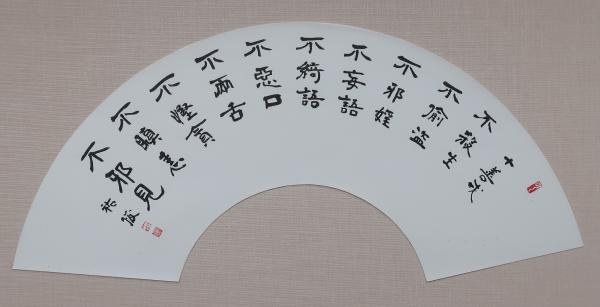 十善戒
不殺生
不偷盜
不邪婬
不妄語
不綺語
不惡口
不兩舌
不慳貪
不瞋恚
不邪見